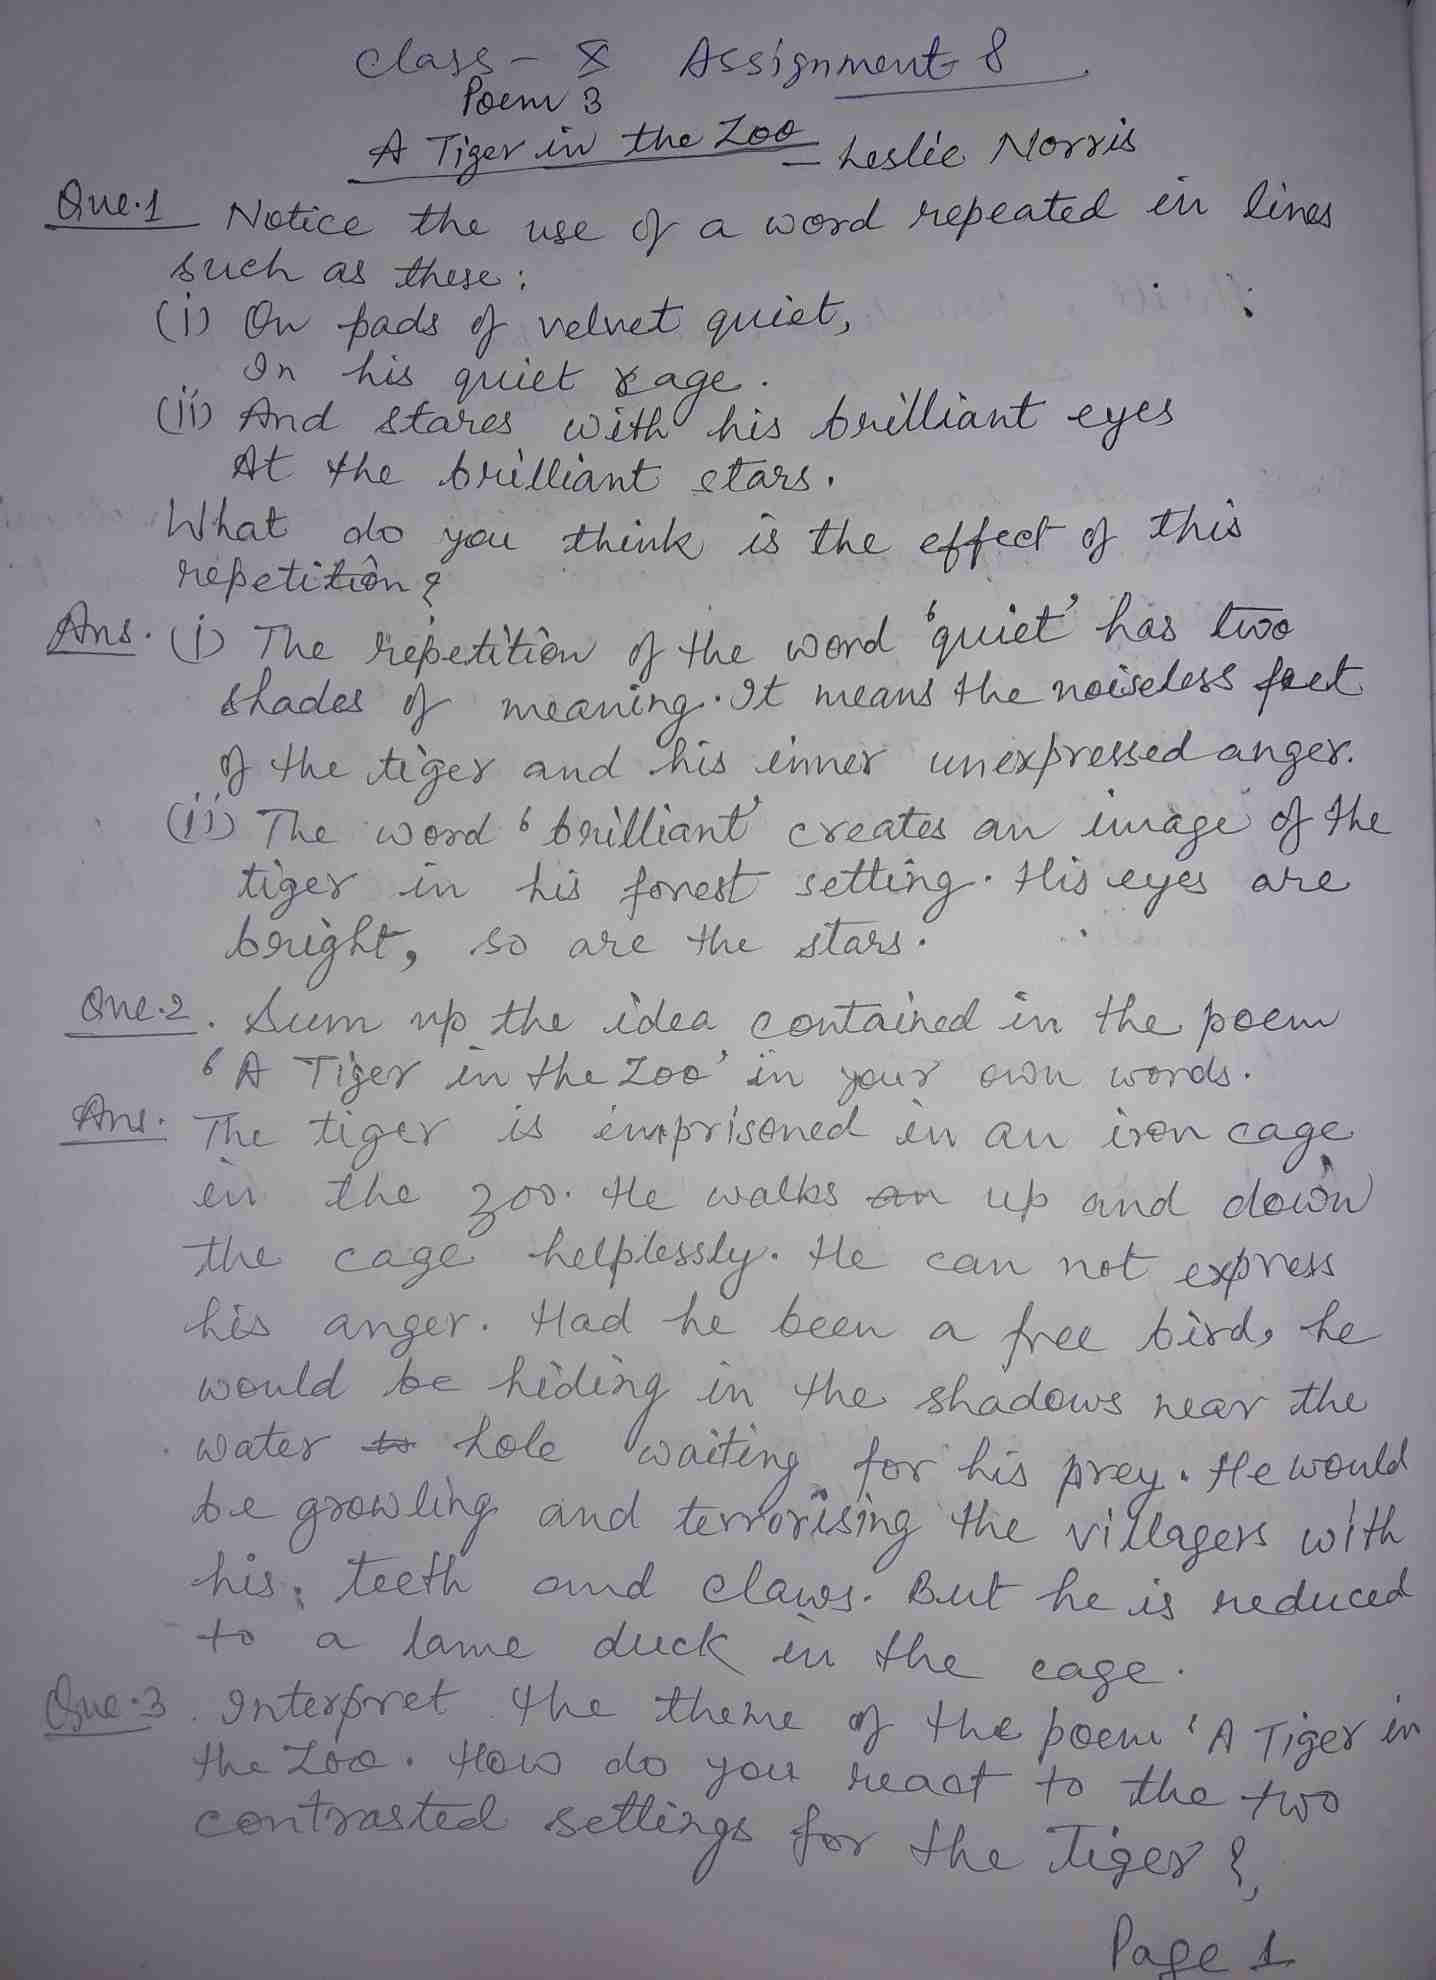 Class - X Assignment 8
Poem 3
A Tiger in the Zoo - Leslie Norris
Que.1 Notice the use of a word repeated in lines
such as these:
(i) On pads of velvet quiet,
In his quiet rage.
(ii) And stares with his brilliant eyes
At the brilliant stars.
What do you think is the effect of this
repetition?
Ans. (i) The repetition of the word 'quiet' has two
shades of meaning. It means the noiseless feet
of the tiger and his inner unexpressed anger.
(ii) The word 'brilliant' creates an image of the
tiger in his forest setting. His eyes are
bright, so are the stars.
Que.2. Sum up the idea contained in the poem
'A Tiger in the Zoo' in your own words.
Ans. The tiger is imprisoned in an iron cage
in the zoo. He walks an up and down
the cage helplessly. He can not express
his anger. Had he been a free bird, he
would be hiding in the shadows near the
water to hole waiting for his prey. He would
be growling and terrorising the villagers with
his teeth and claws. But he is reduced
to a lame duck in the cage.
Que.3. Interpret the theme of the poem 'A Tiger in
the Zoo. How do you react to the two
contrasted settings for the Tiger?
Page 1